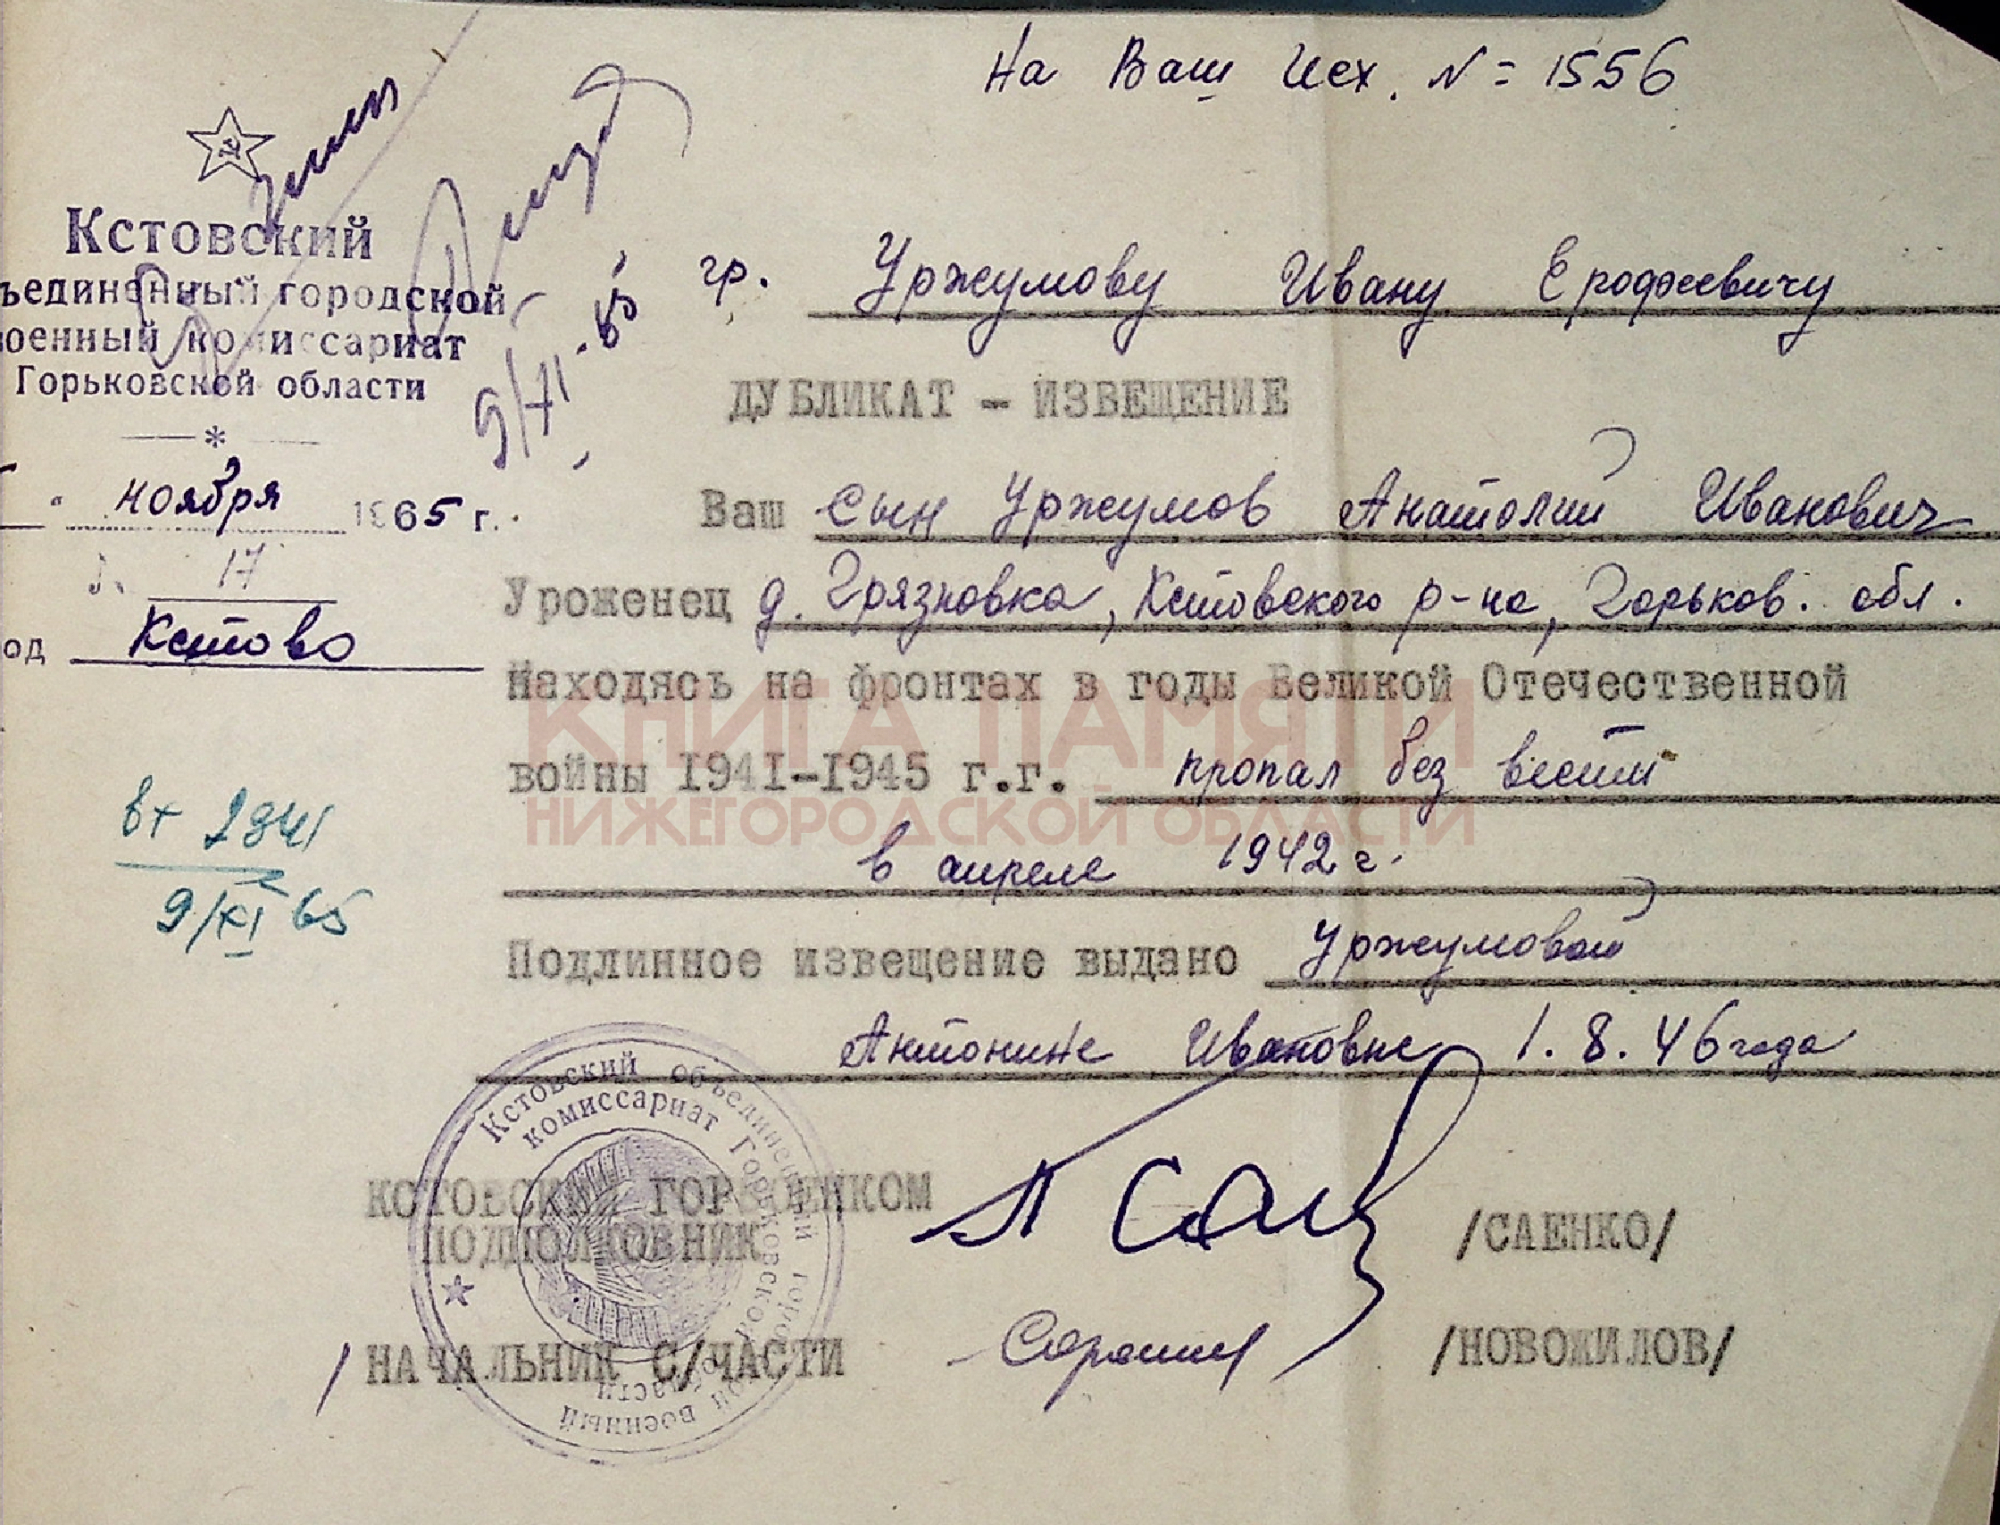 На Ваш Исх. № = 1556
Кстовский
ъединенный городской
военный комиссариат
Горьковской области
*
ноября 1965 г.
17
од Кстово
вх 2841
9/XI 65
9/XI - 65
гр. Уржумову Ивану Ерофеевичу
ДУБЛИКАТ - ИЗВЕЩЕНИЕ
Ваш сын Уржумов Анатолий Иванович
Уроженец д. Грязновка, Кстовского р-на, Горьков. обл.
Находясь на фронтах в годы Великой Отечественной
войны 1941-1945 г.г. пропал без вести
в апреле 1942 г.
Подлинное извещение выдано Уржумовой
Антонине Ивановне 1.8.46 года
КСТОВСКИЙ ГОРВОЕНКОМ
ПОДПОЛКОВНИК /САЕНКО/
/ НАЧАЛЬНИК С/ЧАСТИ /НОВОЖИЛОВ/
Кстовский объединенный городской военный
комиссариат Горьковской области
КНИГА ПАМЯТИ
НИЖЕГОРОДСКОЙ ОБЛАСТИ